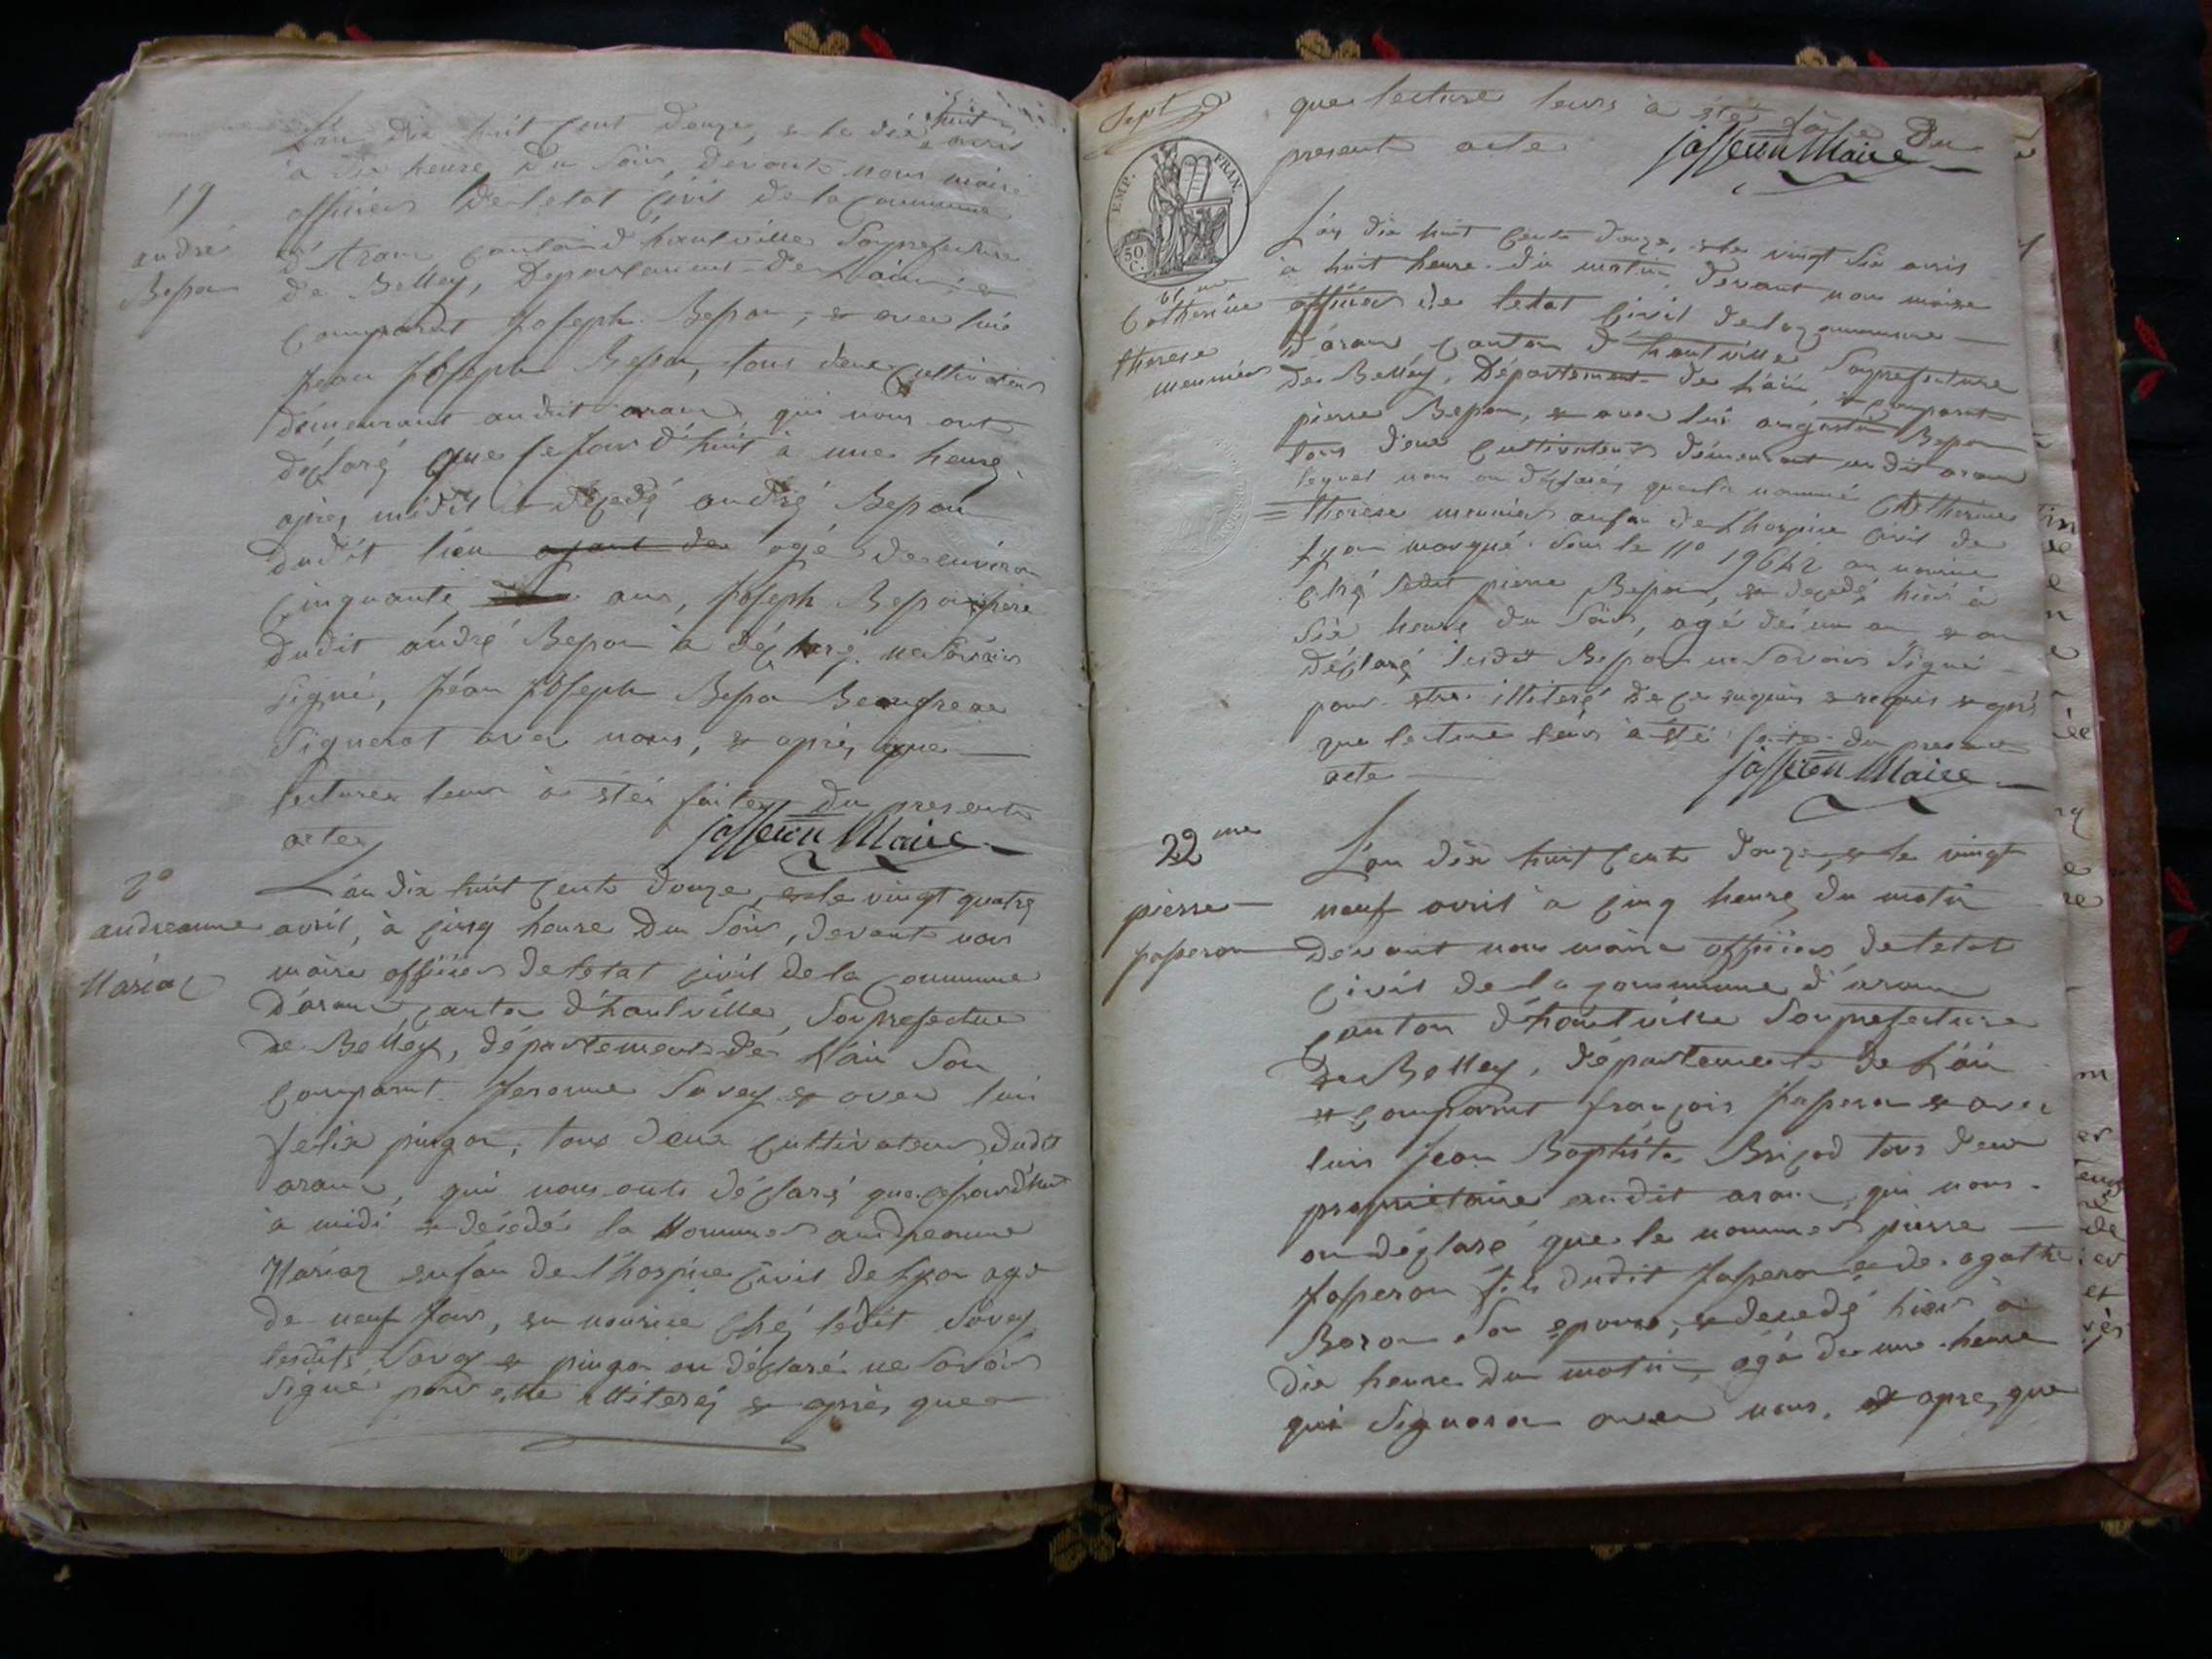 L'an dix huit cent douze, & le dix huit avril
à dix heure du soir, devant nous maire
19
officier de letat civil de la commune
andré
d'Aranc canton d'hautville Souprefecture
Bepon
de Belley, Departement de Lain, &
comparut Joseph Bepon, & avec lui
Jean Joseph Bepon, tous deux cultivateurs
démeurant audit aranc, qui nous ont
déclaré que cejourd'huit à une heure
après midit & décedé andré Bepon
dudit lieu agé de environ
cinquante ans, Joseph Bepon frere
dudit andré Bepon à déclaré ne Savoir
signé, Jéan Joseph Bepon Beaufrere
Signerat avec nous, & après que
lecture leur à été faite du present
acte
Jasseron Maire
20
L'an dix huit cent douze, & le vingt quatre
andreanne
avril, à cinq heure du Soir, devant nous
Mariaz
maire officier de letat civil de la commune
d'aranc canton d'hautville, Souprefecture
de Belley, département de Lain Son
comparut Jeromme Savey & avec lui
felix pingon, tous deux cultivateurs dudit
aranc, qui nous ont déclaré que cejourd'hui
à midi & décedé la Nommé andreanne
Mariaz enfan de l'hospice civil de Lyon agé
de neuf Jour, en nourice ché ledit Savey
lesdits Savey & pingon on déclaré ne Savoir
Signé pour être illiteré & après que
Sept
que lecture leurs à été faite du
present acte
Jasseron Maire
EMP. FRAN.
50 C.
L'an dix huit cent douze, & le vingt six avril
à huit heure du matin, devant nous maire
Catherine
officier de letat civil de la commune
therese
d'aranc canton d'hautville Souprefecture
meunier
de Belley, Département de Lain, & comparut
pierre Bepon, & avec lui augustin Bepon
tous deux cultivateurs démeurant au dit aranc
lequel nous on déclaré, que la nommé Catherine
therese meunier enfan de l'hospice civil de
Lyon marqué Sous le no 19642 en nourice
ché ledit pierre Bepon, & decedé hier à
Six heure du Soir, agé de un an, & on
déclaré lesdit Bepon ne Savoir Signé
pour etre illiteré de ce enquis & requis & après
que lecture leur à été faite du present
acte
Jasseron Maire
22me
L'an dix huit cent douze, & le vingt
pierre
neuf avril à cinq heure du matin
Jasseron
devant nous maire officier de letat
civil de la commune d'aranc
canton d'hautville Souprefecture
de Belley, département de Lain
& comparut françois Jasseron & avec
lui Jean Baptiste Brijod tous deux
propriétaire audit aranc, qui nous
on déclaré que le nommé pierre
Jasseron fils dudit Jasseron & de agathe
Boron Son epouse, & decedé hier à
dix heure du matin, agé de une heure
qui Signeron avec nous, & apres que